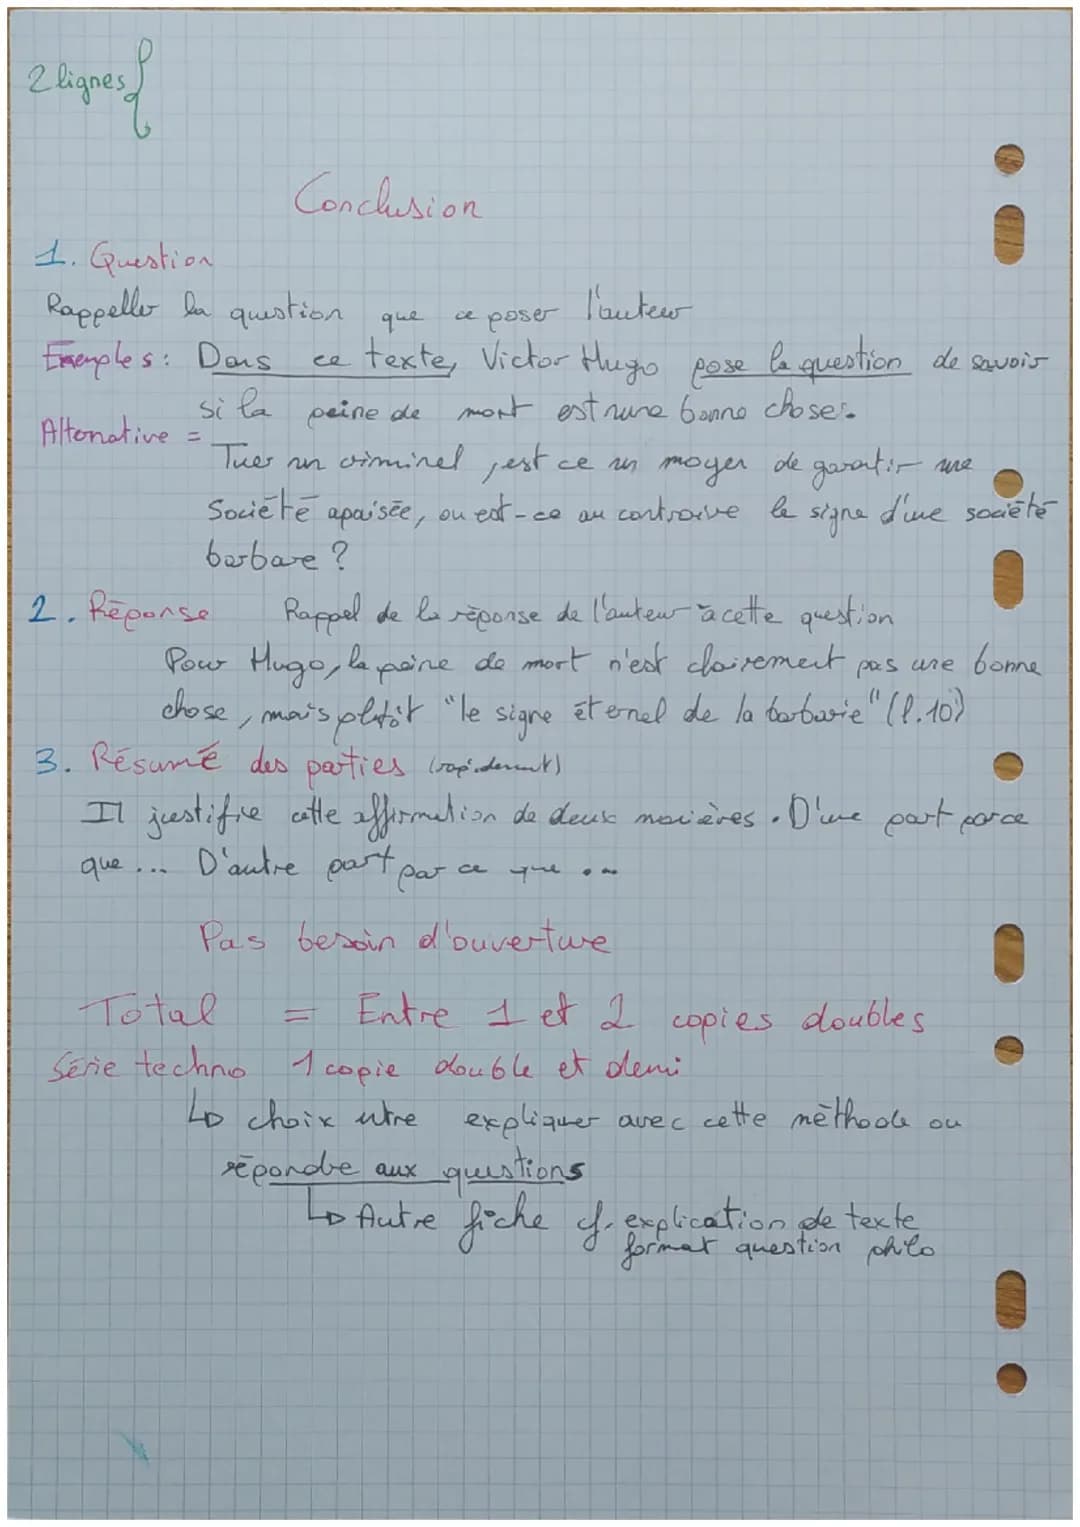 2 lignes {
Conclusion
1. Question
Rappeller la question que ce poser l'auteur
Exemples: Dans ce texte, Victor Hugo pose la question de savoir
si la peine de mort est une bonne chose.
Alternative =
Tuer un criminel, est ce un moyen de garantir une
Société apaisée, ou est-ce au contraire le signe d'une société
barbare ?
2. Réponse Rappel de la réponse de l'auteur à cette question
Pour Hugo, la peine de mort n'est clairement pas une bonne
chose, mais plutôt "le signe éternel de la barbarie" (l.10)
3. Résumé des parties (rapidement)
Il justifie cette affirmation de deux manières. D'une part parce
que ... D'autre part par ce que ...
Pas besoin d'ouverture
Total = Entre 1 et 2 copies doubles
Série techno 1 copie double et demi
↳ choix entre expliquer avec cette méthode ou
répondre aux questions
↳ Autre fiche cf. explication de texte
format question philo